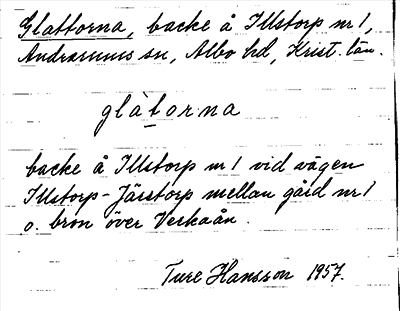 Glattorna, backe å Illstorp nr 1,
Andrarums sn, Albo hd, Krist. län.
glàtorna
backe å Illstorp nr 1 vid vägen
Illstorp-Jässtorp mellan gård nr 1
o. bron över Verkaån.
Ture Hansson 1957.